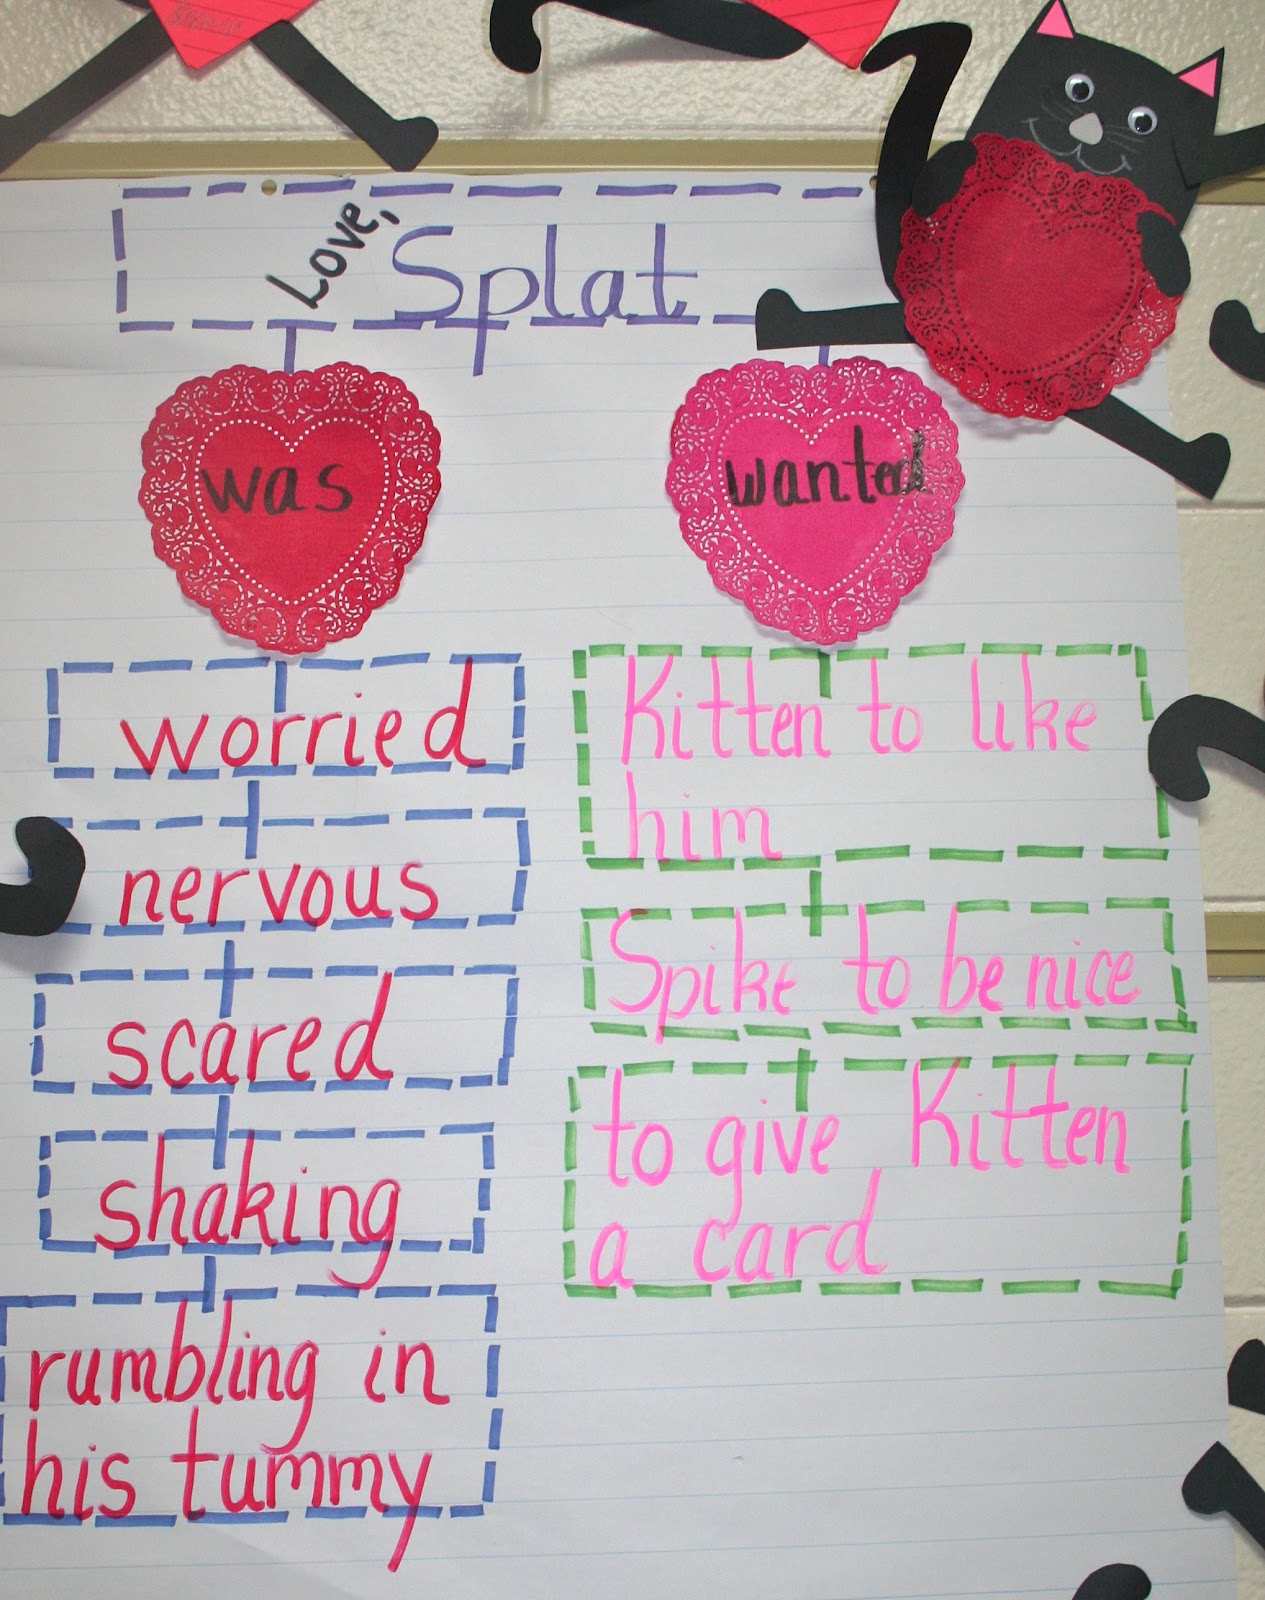 Love, Splat
was
worried
nervous
scared
shaking
rumbling in
his tummy
wanted
Kitten to like
him
Spike to be nice
to give Kitten
a card